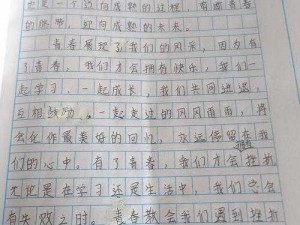 也是一个迈向成熟的过程,有趣青春
的脚步,迈向成熟的未来。
青春展现了我们的风采,因为有
了青春,我们才会拥有快乐,我们一
起学习,一起成长,我们共同进退,
互相鼓励,一起走过的风风雨雨,将
会化作最美好的回忆,永远停留在我
们的心中。有了青春,我们才会挫折
无论是在学习还是生活中,我们会
有失败之时。青春教会我们遇到挫折